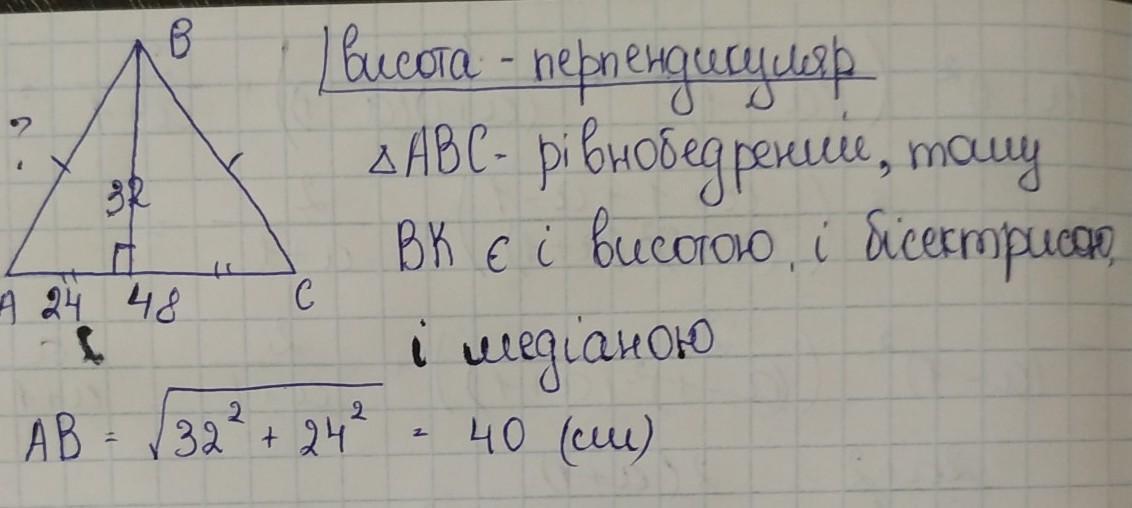 B
висота - перпендикуляр
?
△ABC - рівнобедрений, тому
32
BK є і висотою, і бісектрисою,
A 24 48 C
і медіаною
AB = √32² + 24² = 40 (см)